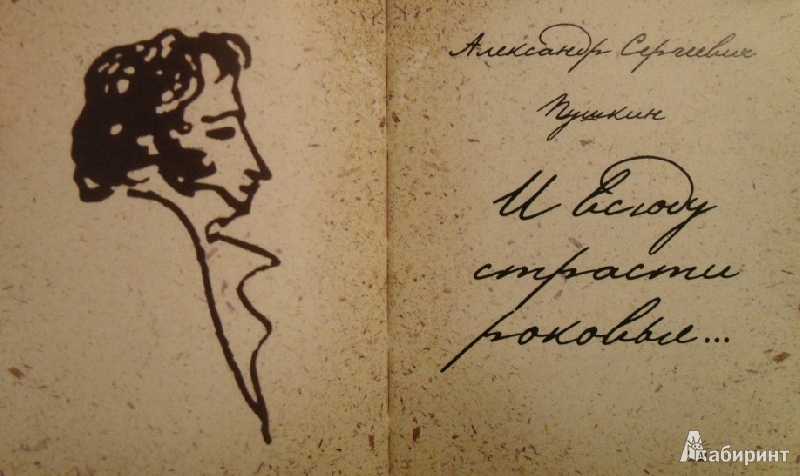 Александр Сергеевич
Пушкин
И всюду
страсти
роковые...
Лабиринт